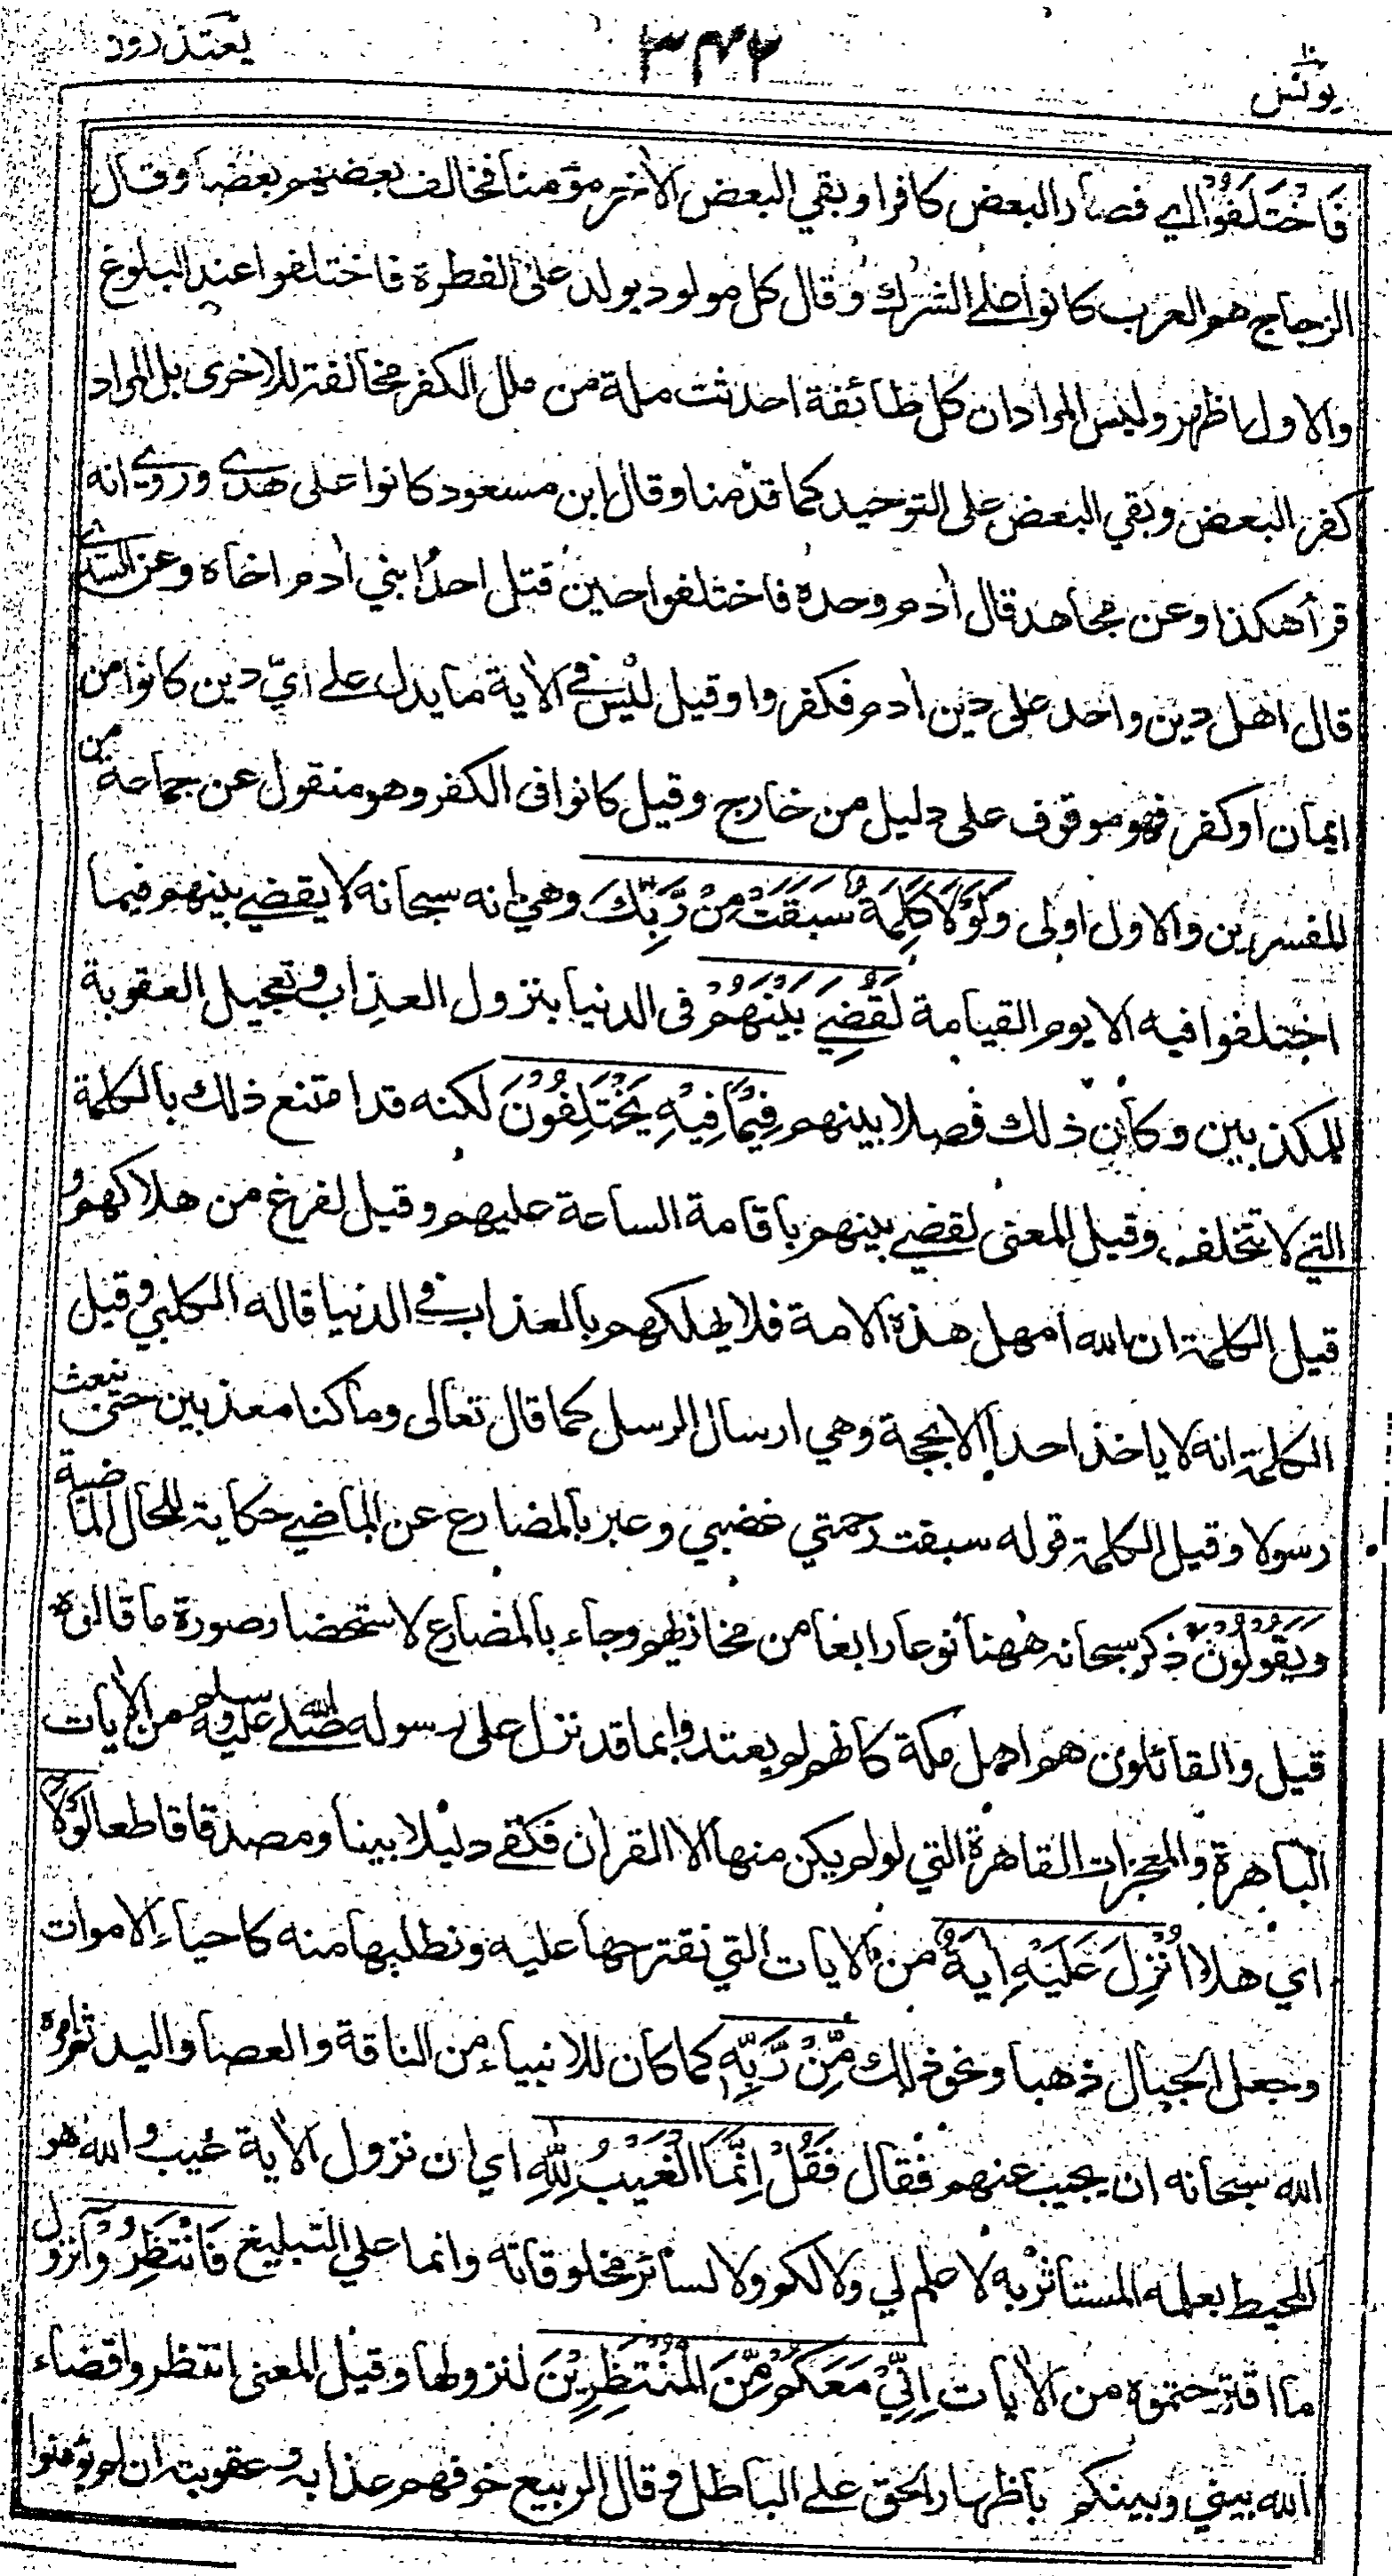 يعتذرون
٣٤٢
١٠
يونس
فَاخْتَلَفُوْا اي فصار البعض كافرا وبقي البعض الاٰخر مؤمنا فخالف بعضهم بعضا وقال
الزجاج هم العرب كانوا على الشرك وقال كل مولود يولد على الفطرة فاختلفوا عند البلوغ
والاول اظهر وليس المراد ان كل طائفة احدثت ملة من ملل الكفر مخالفة للاخرى بل المراد
كفر البعض وبقي البعض على التوحيد كما قدمنا وقال ابن مسعود كانوا على هدى وروي انه
قرأ هكذا وعن مجاهد قال اٰدم وحده فاختلفوا حين قتل احد ابني اٰدم اخاه وعن السدي
قال اهل دين واحد على دين اٰدم فكفروا وقيل ليس في الاٰية ما يدل على اي دين كانوا من
ايمان او كفر فهو موقوف على دليل من خارج وقيل كانوا في الكفر وهو منقول عن جماعة من
المفسرين والاول اولى وَلَوْلَا كَلِمَةٌ سَبَقَتْ مِنْ رَّبِّكَ وهي انه سبحانه لا يقضي بينهم فيما
اختلفوا فيه الا يوم القيامة لَقُضِيَ بَيْنَهُمْ في الدنيا بنزول العذاب وتعجيل العقوبة
للمكذبين وكان ذلك فصلا بينهم فِيْمَا فِيْهِ يَخْتَلِفُوْنَ لكنه قد امتنع ذلك بالكلمة
التي لا تتخلف وقيل المعنى لقضي بينهم باقامة الساعة عليهم وقيل لفرغ من هلاكهم و
قيل الكلمة ان الله امهل هذه الامة فلا يهلكهم بالعذاب في الدنيا قاله الكلبي وقيل
الكلمة انه لا ياخذ احدا الا بحجة وهي ارسال الرسل كما قال تعالى وما كنا معذبين حتى نبعث
رسولا وقيل الكلمة قوله سبقت رحمتي غضبي وعبر بالمضارع عن الماضي حكاية للحال الماضية
وَيَقُوْلُوْنَ ذكر سبحانه ههنا نوعا رابعا من مخازيهم وجاء بالمضارع لاستحضار صورة ما قالوه
قيل والقائلون هم اهل مكة كانهم لم يعتدوا بما قد نزل على رسوله صلى الله عليه وسلم من الاٰيات
الباهرة والمعجزات القاهرة التي لو لم يكن منها الا القراٰن فكفى دليلا بينا ومصدقا قاطعا لَوْلَا
اي هلا اُنْزِلَ عَلَيْهِ اٰيَةٌ من الاٰيات التي نقترحها عليه ونطلبها منه كاحياء الاموات
وجعل الجبال ذهبا ونحو ذلك مِّنْ رَّبِّهٖ كما كان للانبياء من الناقة والعصا واليد ثم امره
الله سبحانه ان يجيب عنهم فقال فَقُلْ اِنَّمَا الْغَيْبُ لِلّٰهِ اي ان نزول الاٰية غيب والله هو
المحيط بعلمه المستأثر به لا علم لي ولا لكم ولا لسائر مخلوقاته وانما علي التبليغ فَانْتَظِرُوْا نزول
ما اقترحتموه من الاٰيات اِنِّيْ مَعَكُمْ مِّنَ الْمُنْتَظِرِيْنَ لنزولها وقيل المعنى انتظروا قضاء
الله بيني وبينكم باظهار الحق على الباطل وقال الربيع خوفهم عذابه وعقوبته ان لم يؤمنوا